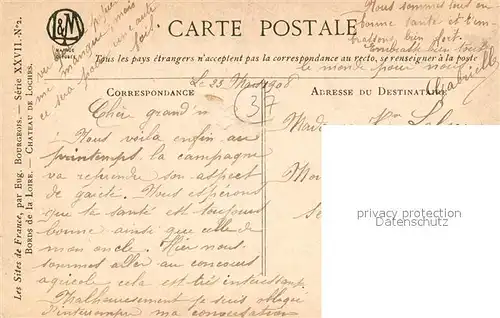 L&M
MARQUE
CARTE POSTALE
Tous les pays étrangers n'acceptent pas la correspondance au recto, se renseigner à la poste
CORRESPONDANCE
ADRESSE DU DESTINATAIRE
Les Sites de France, par Eug. BOURGEOIS. — Série XXVII. - N° 2.
BORDS DE LA LOIRE. — CHATEAU DE LOCHES.
Nous sommes tous en
bonne santé et t'em
brassons bien fort.
Embrasse bien tout
le monde pour nous.
Gabrielle
Le 25 Mars 1908
37
Chère grand'm
Nous voilà enfin au
printemps la campagne
va reprendre son aspect
de gaieté. Nous espérons
que ta santé est toujours
bonne ainsi que celle de
mon oncle. Hier nous
sommes aller au concours
agricole cela est très intéressant
Malheureusement je suis obligée
d'interrompre ma conversation
property protection
Datenschutz